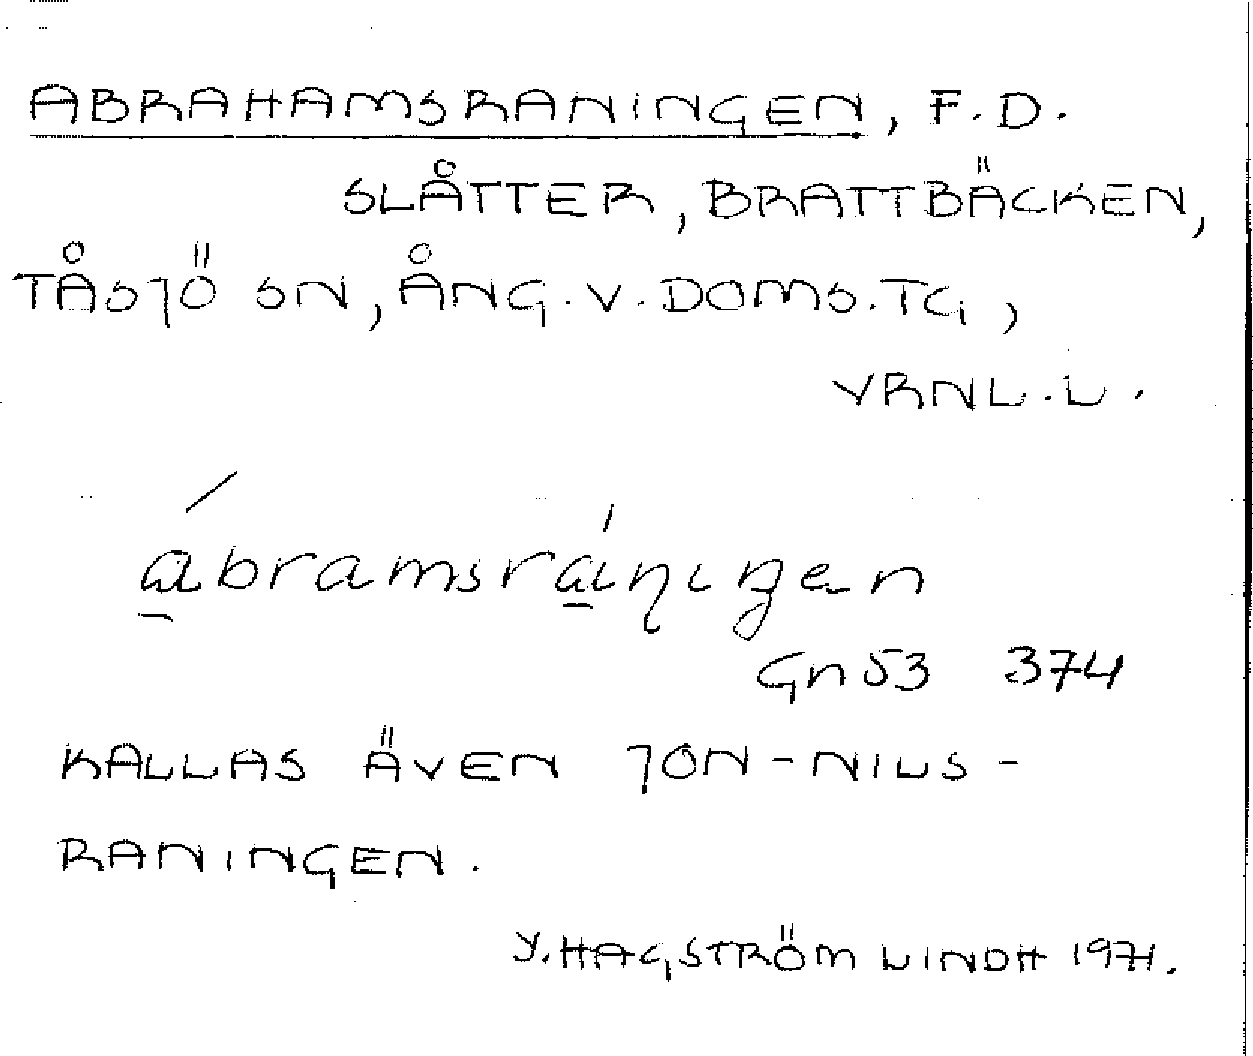 ABRAHAMSRANINGEN, F.D.
SLÅTTER, BRATTBÄCKEN,
TÅSJÖ SN, ÅNG.V.DOMS.TG,
VRNL.L.
ábramsráningen
Gn 53 374
KALLAS ÄVEN JON-NILS-
RANINGEN.
Y. HAGSTRÖM LINDH 1971.